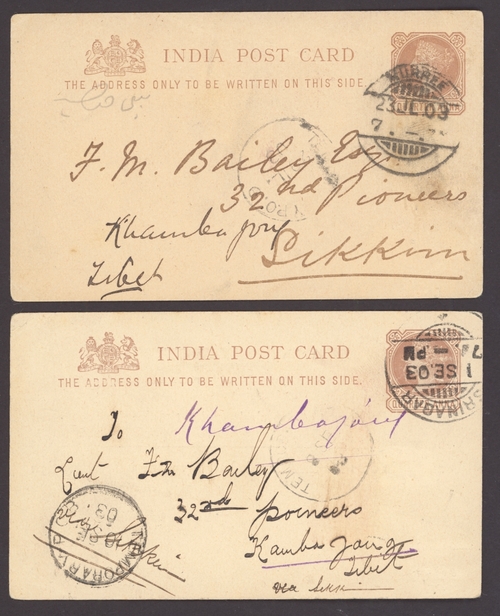 INDIA POST CARD
THE ADDRESS ONLY TO BE WRITTEN ON THIS SIDE.
MURREE
23 JL 03
7
F. M. Bailey Esq
32nd Pioneers
Khamba jong
Sikkim
Tibet
INDIA POST CARD
THE ADDRESS ONLY TO BE WRITTEN ON THIS SIDE.
SRINAGAR
1 SE 03
PM
To Khambajong
Lieut F. M. Bailey
32nd pioneers
Kamba Jong
Tibet
via Sikkim
TEMPORARY P.O
10 SE
03
TEM